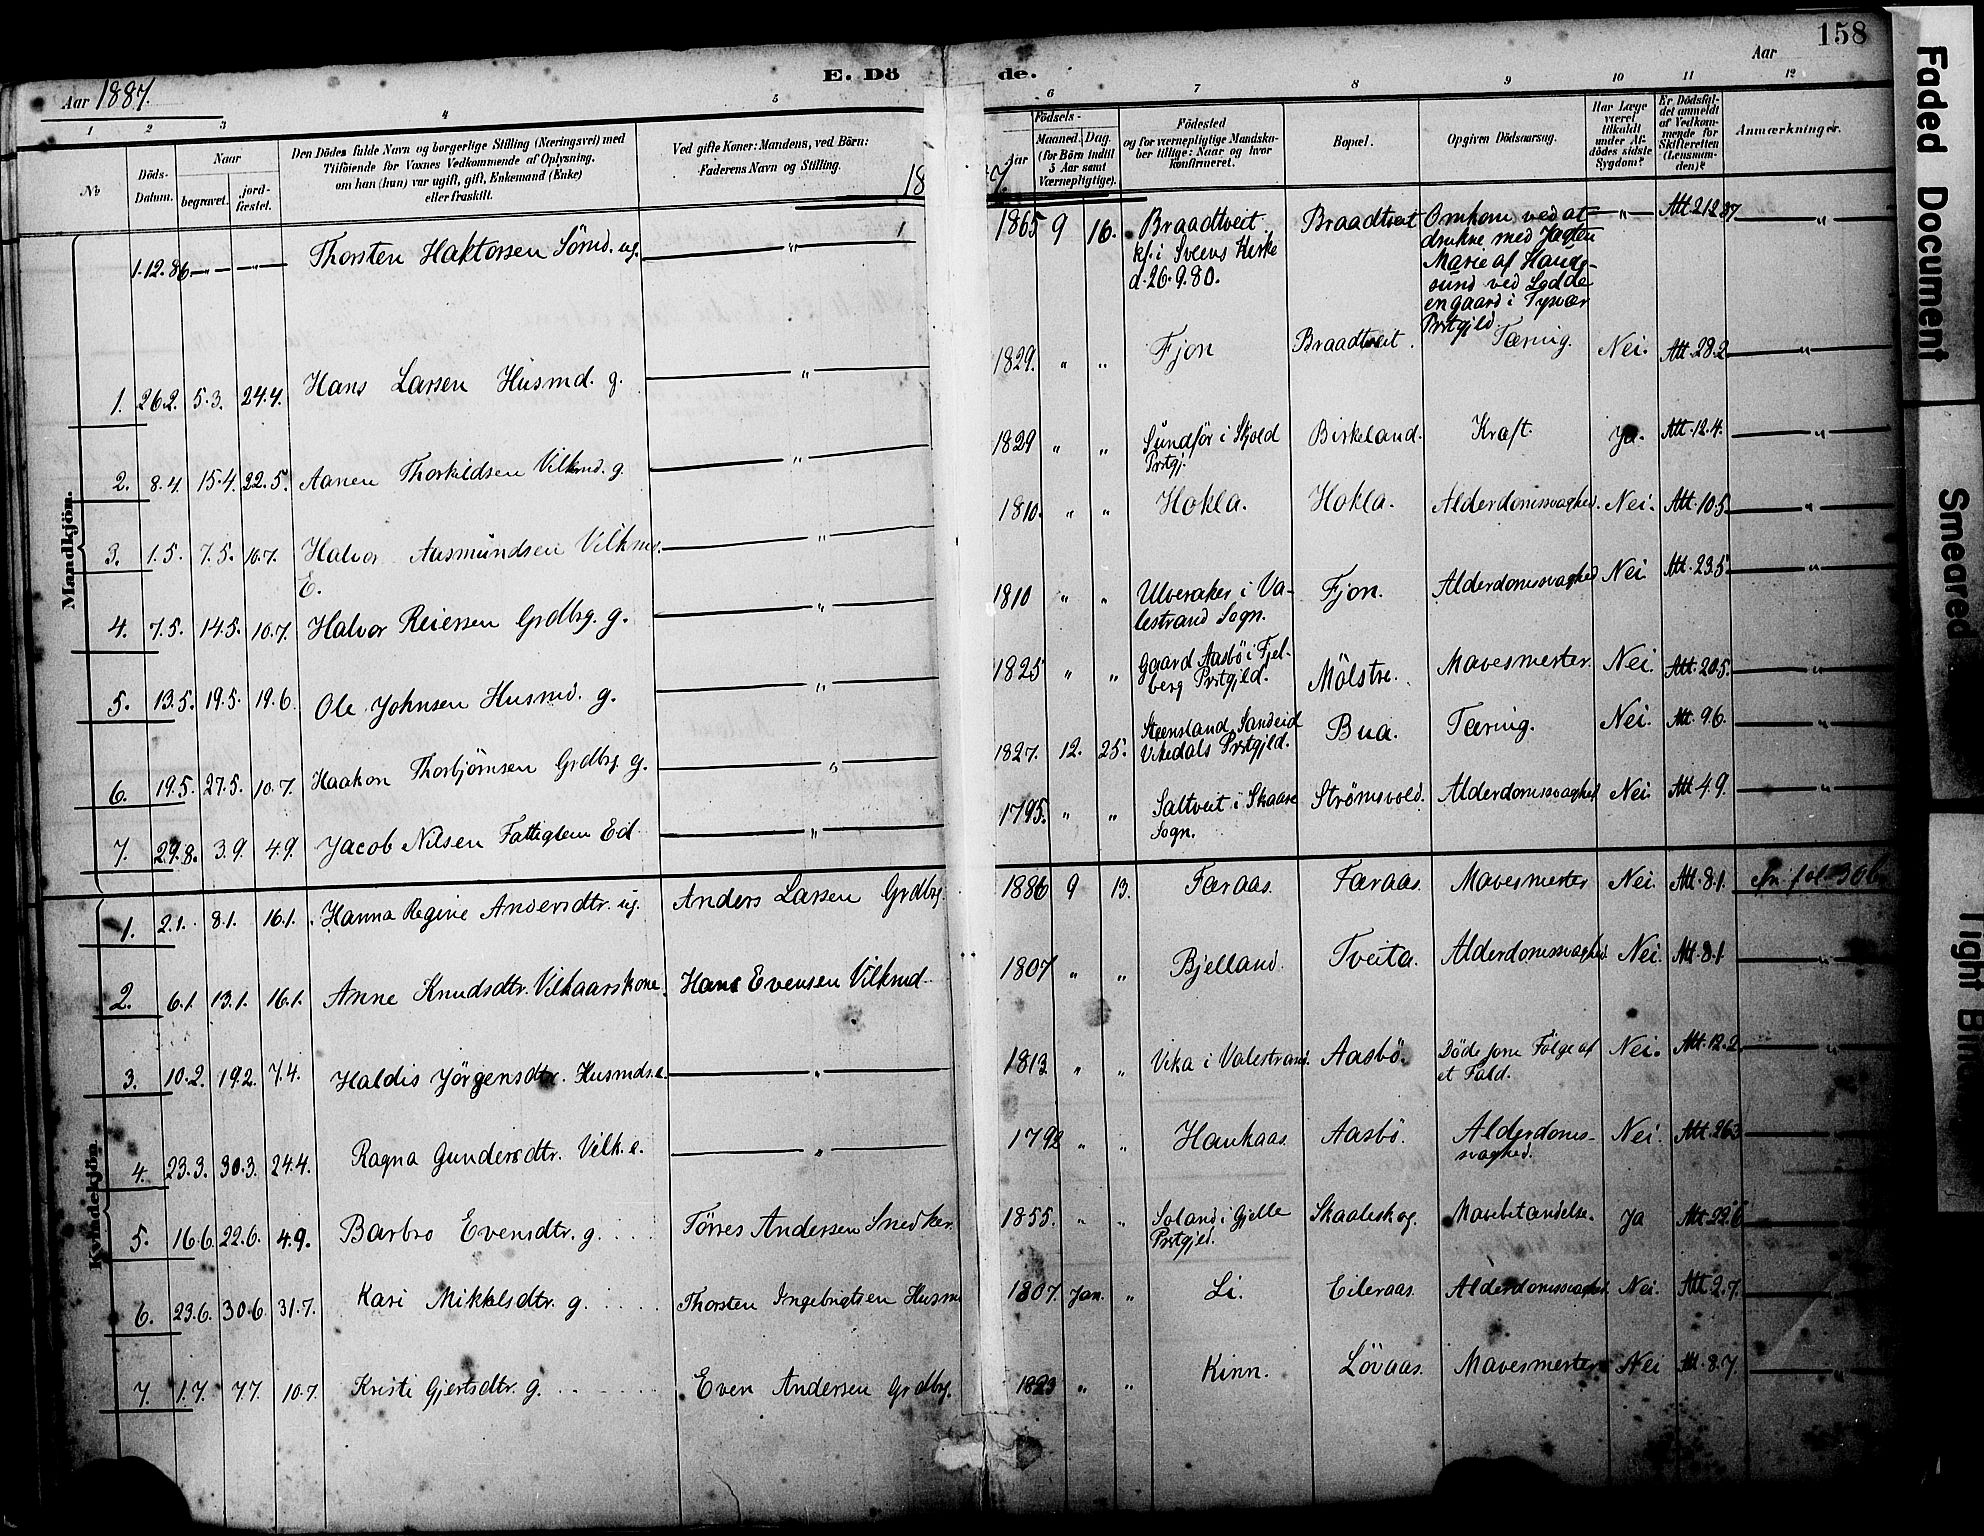 158
Aar 1887.
E. Dö de.
Aar
1 2 3 4 5 6 7 8 9 10 11 12
No
Döds-Datum.
Naar
begravet.
jord-fæstet.
Den Dödes fulde Navn og borgerlige Stilling (Næringsvei) med
Tilföiende for Voxnes Vedkommende af Oplysning,
om han (hun) var ugift, gift, Enkemand (Enke)
eller fraskilt.
Ved gifte Koner: Mandens, ved Börn:
Faderens Navn og Stilling.
Födsels-
Aar
Maaned. Dag.
(for Börn indtil
5 Aar samt
Værnepligtige).
Födested
og for værnepligtige Mandska-
ber tillige: Naar og hvor
konfirmeret.
Bopæl.
Opgiven Dödsaarsag.
Har Læge
været
tilkaldt
under Af-
dödes sidste
Sygdom?
Er Dödsfal-
det anmeldt
af Vedkom-
mende for
Skifteretten
(Lensman-
den)?
Anmærkninger.
Mandkjön.
1.12.86 — " — — " — Thorsten Haktorsen Sömd. ug. — " — 1865 9 16. Braadtveit. Braadtveit Omkom ved at — " — Att 21287 "
kf. i Sveens Kirke drukne med Jagten
d. 26.9.80. Marie af Hauge-
sund ved Lodde
en gaard i Tysvær
Prstgjld.
1. 26.2. 5.3. 24.4. Hans Larsen Husmd. g. — " — 1829. " " Fjon Braadtveit. Tæring. Nei. Att. 28.2 — " —
2. 8.4. 15.4. 22.5. Aanen Thorkildsen Vilkmd. g. — " — 1829 " " Sundför i Skjold Birkeland. Kræft. Ja. Att. 12.4. — " —
Prstgj.
3. 1.5. 7.5. 10.7. Halvor Aasmundsen Vilkmd. — " — 1810. " " Hokla. Hokla. Alderdomssvaghed. Nei. Att. 10.5. — " —
E.
4. 7.5. 14.5. 10.7. Halvor Reiersen Grdbrg. g. — " — 1810 " " Ulveraker i Va- Fjon. Alderdomssvaghed Nei Att. 23.5 — " —
lestrand Sogn.
5. 13.5. 19.5. 19.6. Ole Johnsen Husmd. g. — " — 1825 " " Gaard Aasbö i Fjel- Mölstre. Mavesmerter. Nei Att. 20.5. — " —
berg Prstgjld.
6. 19.5. 27.5. 10.7. Haakon Thorbjörnsen Grdbrg. g. — " — 1827. 12. 25. Steensland Sandeid Bua. Tæring. Nei. Att. 9.6. — " —
Vikedals Prstgjld.
7. 29.8. 3.9. 4.9. Jacob Nilsen Fattiglem E — " — 1795. " " Saltveit i Skaare Strømsvold. Alderdomssvaghed Nei Att 4.9. — " —
Sogn.
Kvindekjön.
1. 2.1. 8.1. 16.1. Hanna Regine Andersdtr. ug. Anders Larsen Grdbrg. 1886 9 13. Færaas. Færaas. Mavesmerter Nei. Att. 8.1. cfr. fol. 306
2. 6.1. 13.1. 16.1. Anne Knudsdtr. Vilkaarskone. Hans Evensen Vilkmd. 1807 " " Bjelland. Tveita. Alderdomssvaghed. Nei. Att. 8.1 — " —
3. 10.2. 19.2. 7.4. Haldis Jörgensdtr. Husmds.e. — " — 1813 " " Vika i Valestrand. Aasbö. Døde som Følge af Nei. Att. 12.2. — " —
et Fald.
4. 23.3. 30.3. 24.4. Ragna Gundersdtr. Vilk.e. — " — 1792 " " Haukaas. Aasbö. Alderdoms- Nei. Att. 26.3 — " —
svaghed.
5. 16.6. 22.6. 4.9. Barbro Evensdtr. g. Törres Andersen Snedker. 1855. " " Soland i Gjelle Skaaleskog. Mavebetændelse. Ja Att. 22.6 — " —
Prstgjld.
6. 23.6. 30.6. 31.7. Kari Mikkelsdtr. g. Thorsten Ingebrigtsen Husm 1807. Jan. " Li. Eileraas. Alderdomssvaghed. Nei. Att. 2.7. — " —
7. 1.7. 7.7. 10.7. Kristi Gjertsdtr. g. Even Andersen Grdbrg. 1823 " " Kinn. Lövaas. Mavesmerter Nei Att. 8.7. — " —
Faded Document
Smeared
Tight